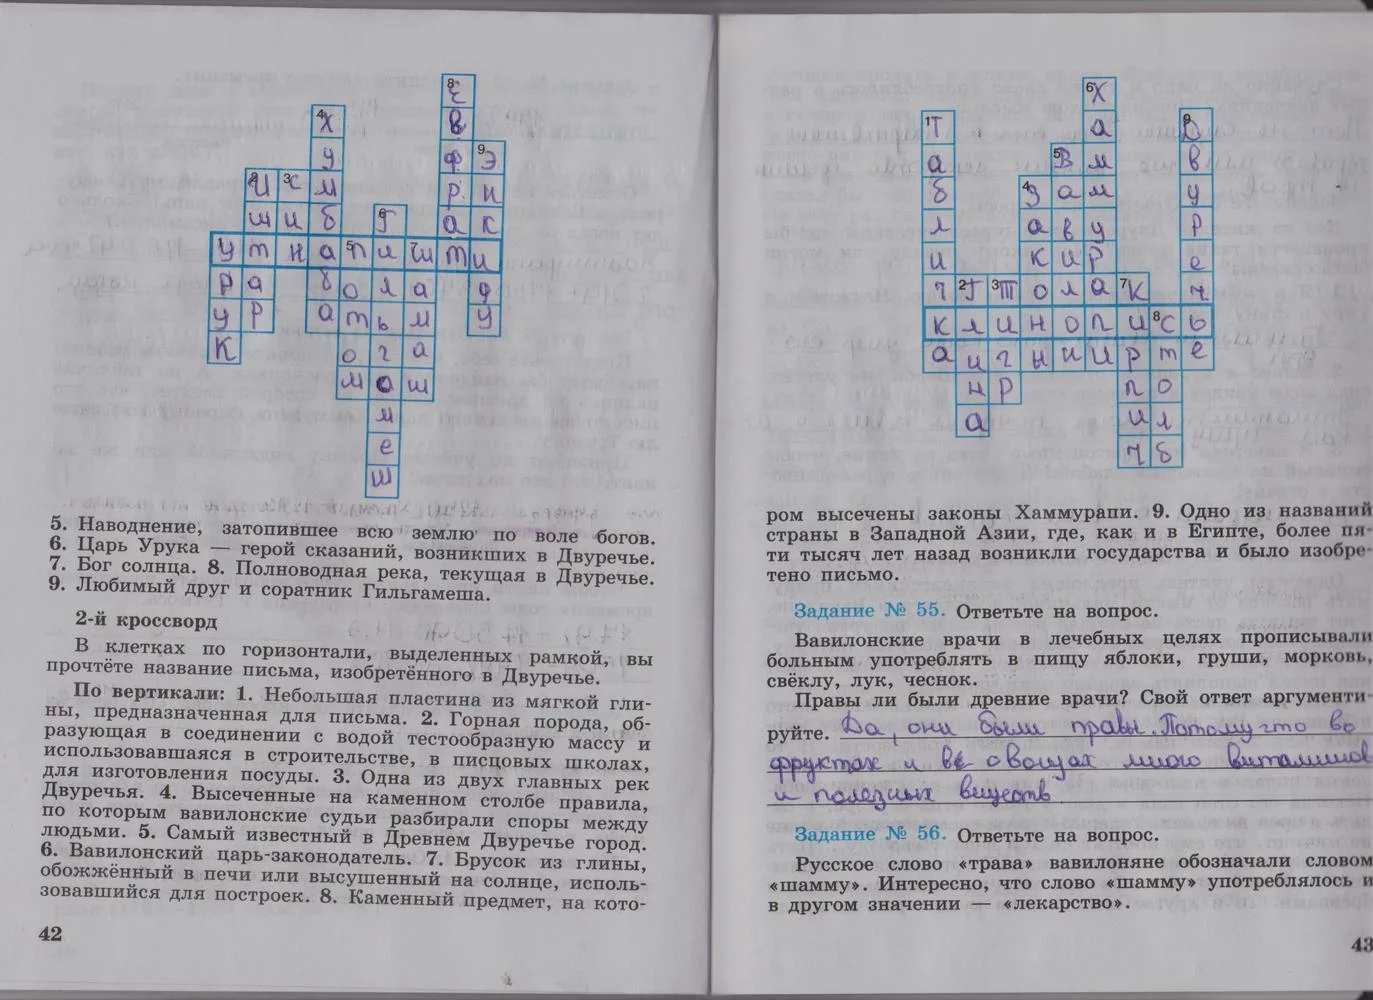 8 Е
4 Х в
у ф 9 Э
2 И 3 с м р н
ш и б 6 Г а к
у т н а 5 п и 7 ш т и
р а б о л а д
у р а т ь м у
К о г а
м а ш
м
е
ш
5. Наводнение, затопившее всю землю по воле богов.
6. Царь Урука — герой сказаний, возникших в Двуречье.
7. Бог солнца. 8. Полноводная река, текущая в Двуречье.
9. Любимый друг и соратник Гильгамеша.
2-й кроссворд
В клетках по горизонтали, выделенных рамкой, вы
прочтёте название письма, изобретённого в Двуречье.
По вертикали: 1. Небольшая пластина из мягкой гли-
ны, предназначенная для письма. 2. Горная порода, об-
разующая в соединении с водой тестообразную массу и
использовавшаяся в строительстве, в писцовых школах,
для изготовления посуды. 3. Одна из двух главных рек
Двуречья. 4. Высеченные на каменном столбе правила,
по которым вавилонские судьи разбирали споры между
людьми. 5. Самый известный в Древнем Двуречье город.
6. Вавилонский царь-законодатель. 7. Брусок из глины,
обожжённый в печи или высушенный на солнце, исполь-
зовавшийся для построек. 8. Каменный предмет, на кото-
42
6 Х
1 Т а 9 Д
а 5 В м в
б 4 З а м у
л а в у р
и к и р е
ч 2 Г 3 Т о л а 7 К ч
к л и н о п и 8 с ь
а и г ы н и р т е
н р п о
а и л
ч б
ром высечены законы Хаммурапи. 9. Одно из названий
страны в Западной Азии, где, как и в Египте, более пя-
ти тысяч лет назад возникли государства и было изобре-
тено письмо.
Задание № 55. Ответьте на вопрос.
Вавилонские врачи в лечебных целях прописывали
больным употреблять в пищу яблоки, груши, морковь,
свёклу, лук, чеснок.
Правы ли были древние врачи? Свой ответ аргументи-
руйте. Да, они были правы. Потому что во
фруктах и в овощах много витаминов
и полезных веществ
Задание № 56. Ответьте на вопрос.
Русское слово «трава» вавилоняне обозначали словом
«шамму». Интересно, что слово «шамму» употреблялось и
в другом значении — «лекарство».
43